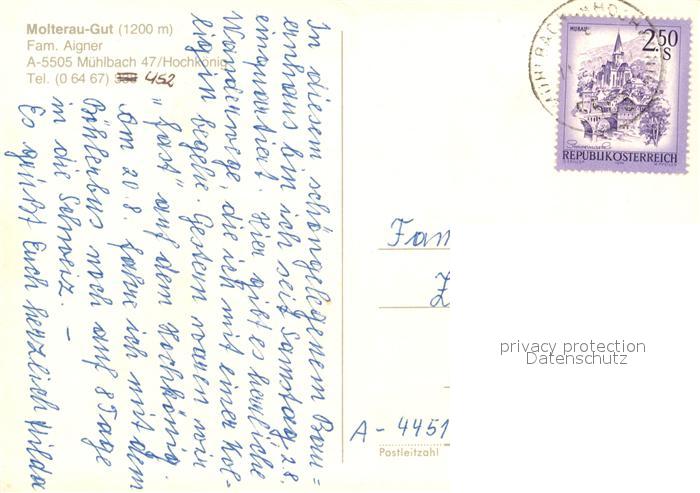 Molterau-Gut (1200 m)
Fam. Aigner
A-5505 Mühlbach 47/Hochkönig
Tel. (0 64 67) 452
In diesem schöngelegenem Bau=
ernhaus bin ich seit Samstag 28.
einquartiert. Hier gibt es herrliche
Wanderwege, die ich mit einer Kol-
legin begehe. Gestern waren wir
"fast" auf dem Hochkönig.
Am 20.8. fahre ich mit dem
Böhlerbus noch auf 8 Tage
in die Schweiz. –
Es grüßt Euch herzlich Hilda
MURAU
2.50
S
Steiermark
REPUBLIK ÖSTERREICH
Fam
A-4451
Postleitzahl
privacy protection
Datenschutz